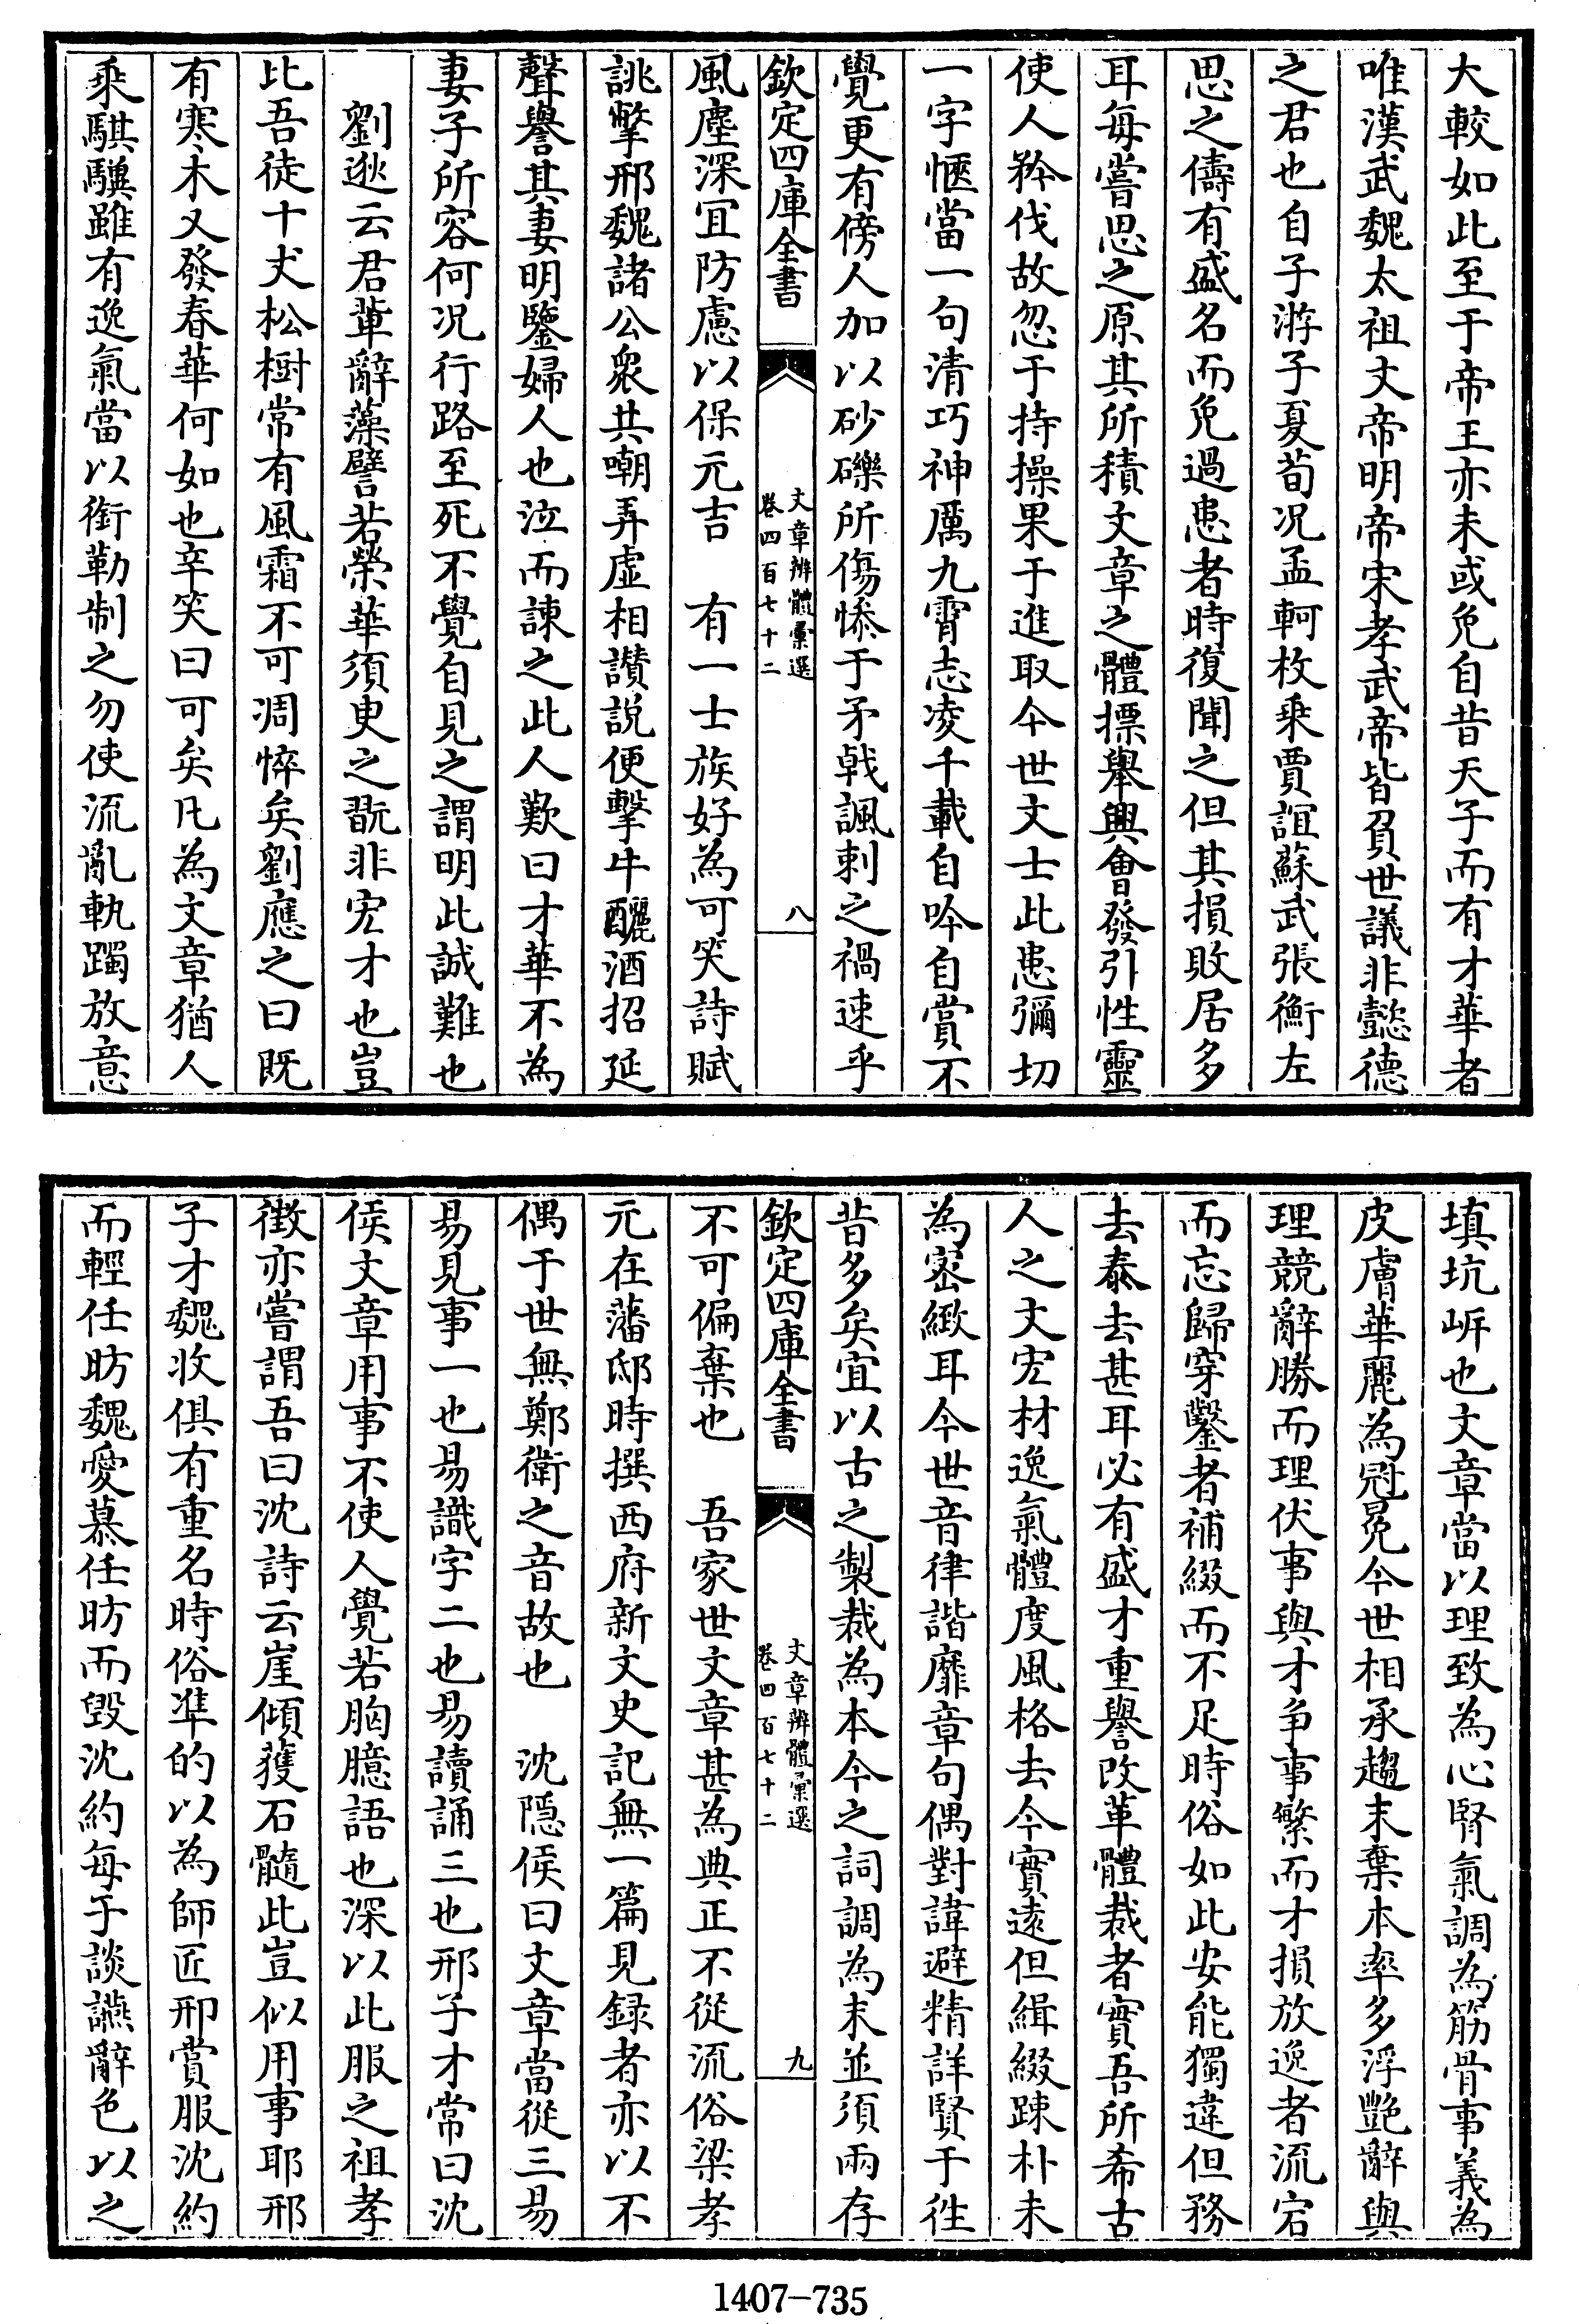 大較如此至于帝王亦未或免自昔天子而有才華者
唯漢武魏太祖文帝明帝宋孝武帝皆負世議非懿德
之君也自子游子夏荀况孟軻枚乘賈誼蘇武張衡左
思之儔有盛名而免過患者時復聞之但其損敗居多
耳每嘗思之原其所積文章之體摽舉興會發引性靈
使人矜伐故忽于持操果于進取今世文士此患彌切
一字愜當一句清巧神厲九霄志凌千載自吟自賞不
覺更有傍人加以砂礫所傷慘于矛戟諷刺之禍速乎
欽定四庫全書
文章辨體彙選
卷四百七十二
八
風塵深宜防慮以保元吉　有一士族好為可笑詩賦
誂撆邢魏諸公衆共嘲弄虛相讚説便擊牛釃酒招延
聲譽其妻明鑒婦人也泣而諫之此人歎曰才華不為
妻子所容何况行路至死不覺自見之謂明此誠難也
劉逖云君輩辭藻譬若榮華須臾之翫非宏才也豈
比吾徒十丈松樹常有風霜不可凋悴矣劉應之曰既
有寒木又發春華何如也辛笑曰可矣凡為文章猶人
乘騏驥雖有逸氣當以銜勒制之勿使流亂軌躅放意
填坑岍也文章當以理致為心腎氣調為筋骨事義為
皮膚華麗為冠冕今世相承趨末棄本率多浮艷辭與
理競辭勝而理伏事與才争事繁而才損放逸者流宕
而忘歸穿鑿者補綴而不足時俗如此安能獨違但務
去泰去甚耳必有盛才重譽改革體裁者實吾所希古
人之文宏材逸氣體度風格去今實遠但緝綴踈朴未
為宻緻耳今世音律諧靡章句偶對諱避精詳賢于徃
昔多矣宜以古之製裁為本今之詞調為末並須兩存
欽定四庫全書
文章辨體彙選
卷四百七十二
九
不可偏棄也　吾家世文章甚為典正不從流俗梁孝
元在藩邸時撰西府新文史記無一篇見録者亦以不
偶于世無鄭衛之音故也　沈隠侯曰文章當從三易
易見事一也易識字二也易讀誦三也邢子才常曰沈
侯文章用事不使人覺若胸臆語也深以此服之祖孝
徴亦嘗謂吾曰沈詩云崖傾獲石髓此豈似用事耶邢
子才魏收俱有重名時俗凖的以為師匠邢賞服沈約
而輕任昉魏愛慕任昉而毁沈約每于談讌辭色以之
1407-735